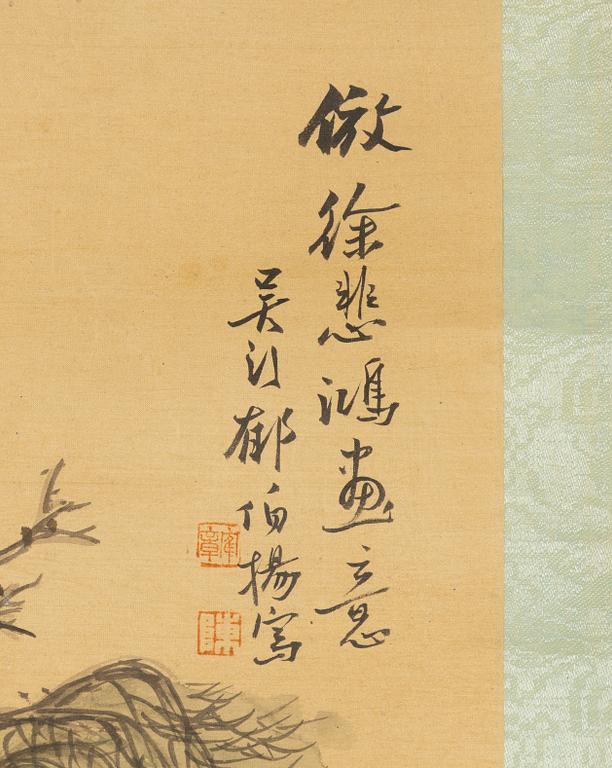 倣徐悲鴻畫意
吳門郁伯揚寫